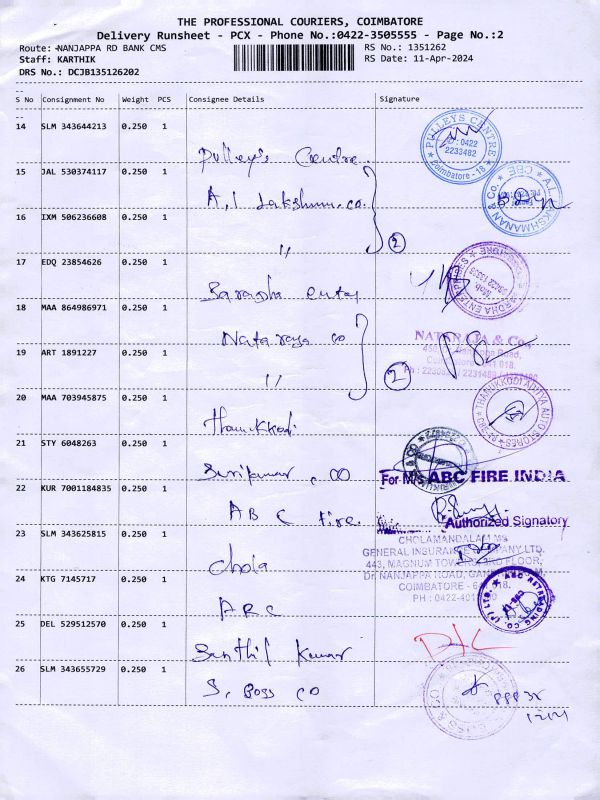 THE PROFESSIONAL COURIERS, COIMBATORE
Delivery Runsheet - PCX - Phone No.:0422-3505555 - Page No.:2
Route: NANJAPPA RD BANK CMS RS No.: 1351262
Staff: KARTHIK RS Date: 11-Apr-2024
DRS No.: DCJB135126202
S No Consignment No Weight PCS Consignee Details Signature
14 SLM 343644213 0.250 1
Pulley's Centre
PULLEYS CENTRE
0422
2233482
Coimbatore - 18
15 JAL 530374117 0.250 1
A, L Lakshmn. co.
A.L. LAKSHMANAN & Co. CBE
16 IXM 506236608 0.250 1
" 2
17 EDQ 23854626 0.250 1
Saradha enter
18 MAA 864986971 0.250 1
Nataraja co
NATARAJA & Co.,
19 ART 1891227 0.250 1
" 2
20 MAA 703945875 0.250 1
Thanukkodi
THANUKKODI ADITYA AUTO STORES
21 STY 6048263 0.250 1
Sunkumar . CO
For M/s ABC FIRE INDIA
22 KUR 7001184835 0.250 1
ABC Fire.
Authorized Signatory
23 SLM 343625815 0.250 1
Chola
CHOLAMANDALAM MS
GENERAL INSURANCE COMPANY LTD.
443, MAGNUM TOWER, 3RD FLOOR,
Dr. NANJAPPA ROAD,
COIMBATORE - 018.
PH : 0422-401
24 KTG 7145717 0.250 1
ARC
ARC RETREADING CO. (P) LTD.
25 DEL 529512570 0.250 1
Santhil Kumar
D/L
26 SLM 343655729 0.250 1
S. Boss CO